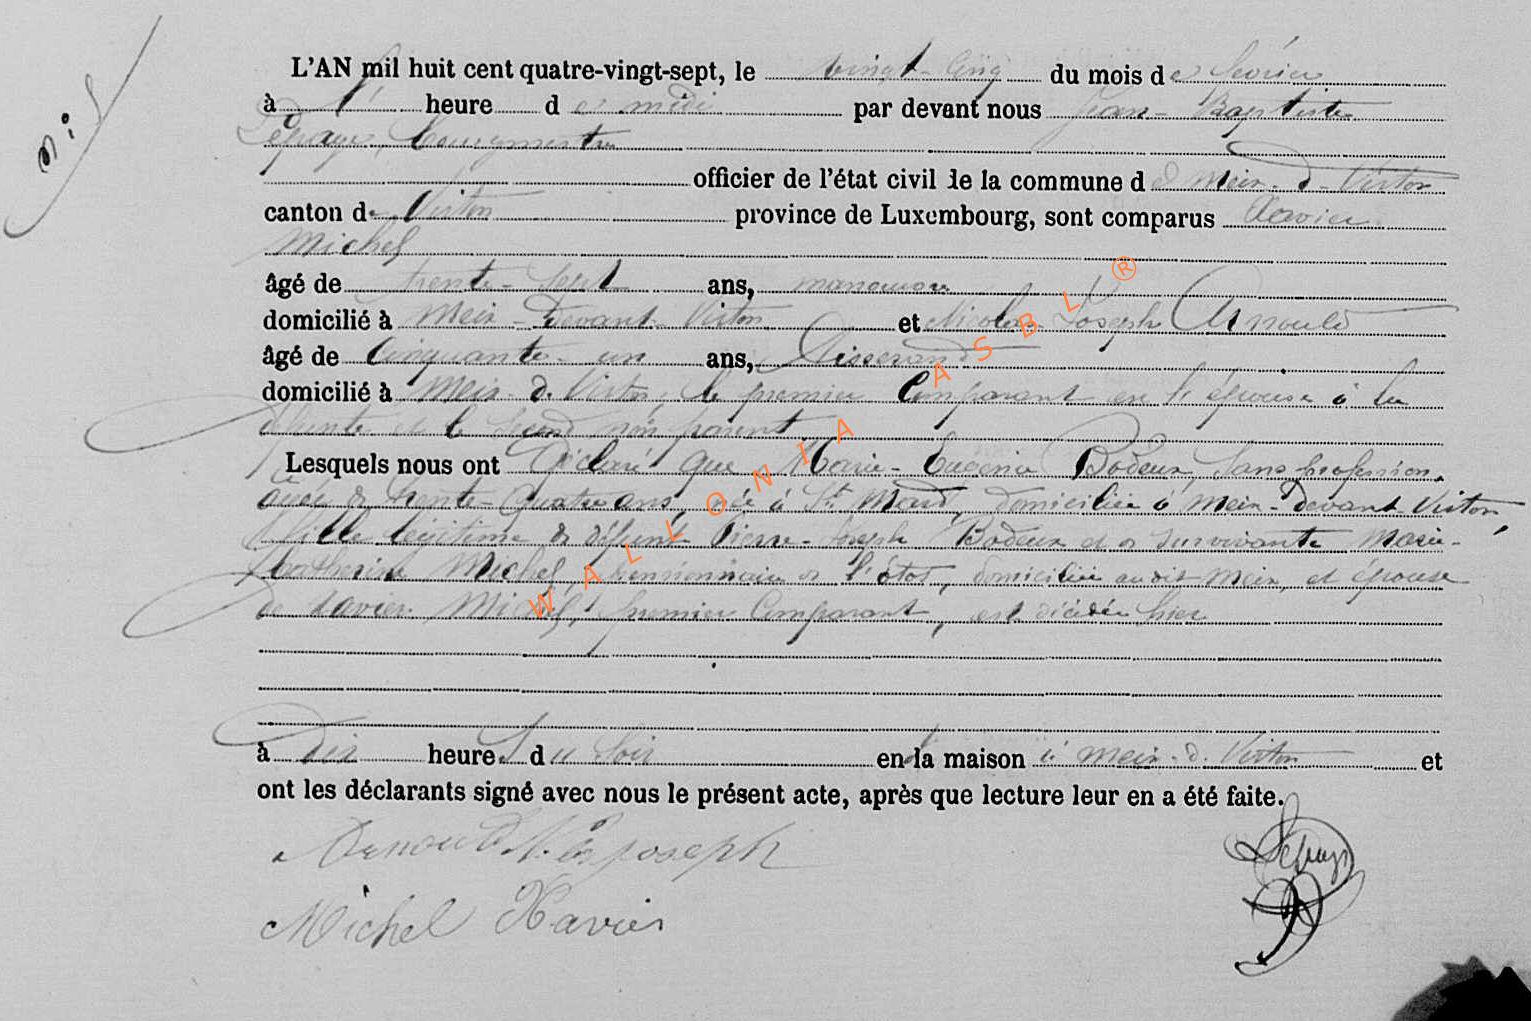 L'AN mil huit cent quatre-vingt-sept, le vingt-cinq du mois de février
à heure de midi par devant nous Jean-Baptiste
Lepage, bourgmestre
officier de l'état civil de la commune de Meix-d-Virton
canton de Virton province de Luxembourg, sont comparus Xavier
Michel
âgé de trente-sept ans, manoeuvre
domicilié à Meix-Devant-Virton et Nicolas Joseph Arnould
âgé de Cinquante-un ans, Tisserand
domicilié à Meix-d-Virton, le premier Comparant en l'époux à la
défunte et le second non parent
Lesquels nous ont déclaré que Marie-Eugénie Bodeux, sans profession,
âgée de trente-quatre ans, née à St Mard, domiciliée à Meix-devant-Virton,
fille légitime de défunt Pierre-Joseph Bodeux et de survivante Marie-
Catherine Michel, pensionnaire de l'état, domiciliée audit Meix, et épouse
de Xavier Michel, premier Comparant, est décédée hier
à dix heures du soir en la maison à Meix-d-Virton et
ont les déclarants signé avec nous le présent acte, après que lecture leur en a été faite.
Arnould N. Joseph
Lepage
Michel Xavier
WALLONIA ASBL ®